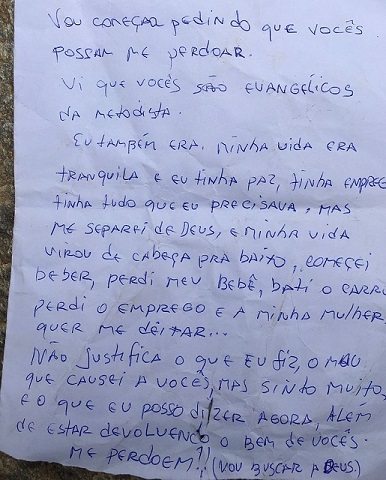 VOU COMEÇAR PEDINDO QUE VOCÊS
POSSAM ME PERDOAR.
VI QUE VOCÊS SÃO EVANGÉLICOS
DA METODISTA.
EU TAMBÉM ERA. MINHA VIDA ERA
TRANQUILA E EU TINHA PAZ, TINHA EMPRE
TINHA TUDO QUE EU PRECISAVA, MAS
ME SEPAREI DE DEUS, E MINHA VIDA
VIROU DE CABEÇA PRA BAIXO, COMECEI
BEBER, PERDI MEU BEBÊ, BATI O CARRO
PERDI O EMPREGO E A MINHA MULHER
QUER ME DEIXAR...
NÃO JUSTIFICA O QUE EU FIZ, O MAU
QUE CAUSEI A VOCÊS, MAS SINTO MUITO,
E O QUE EU POSSO DIZER AGORA, ALÉM
DE ESTAR DEVOLVENDO O BEM DE VOCÊS.
ME PERDOEM!! (VOU BUSCAR A DEUS)